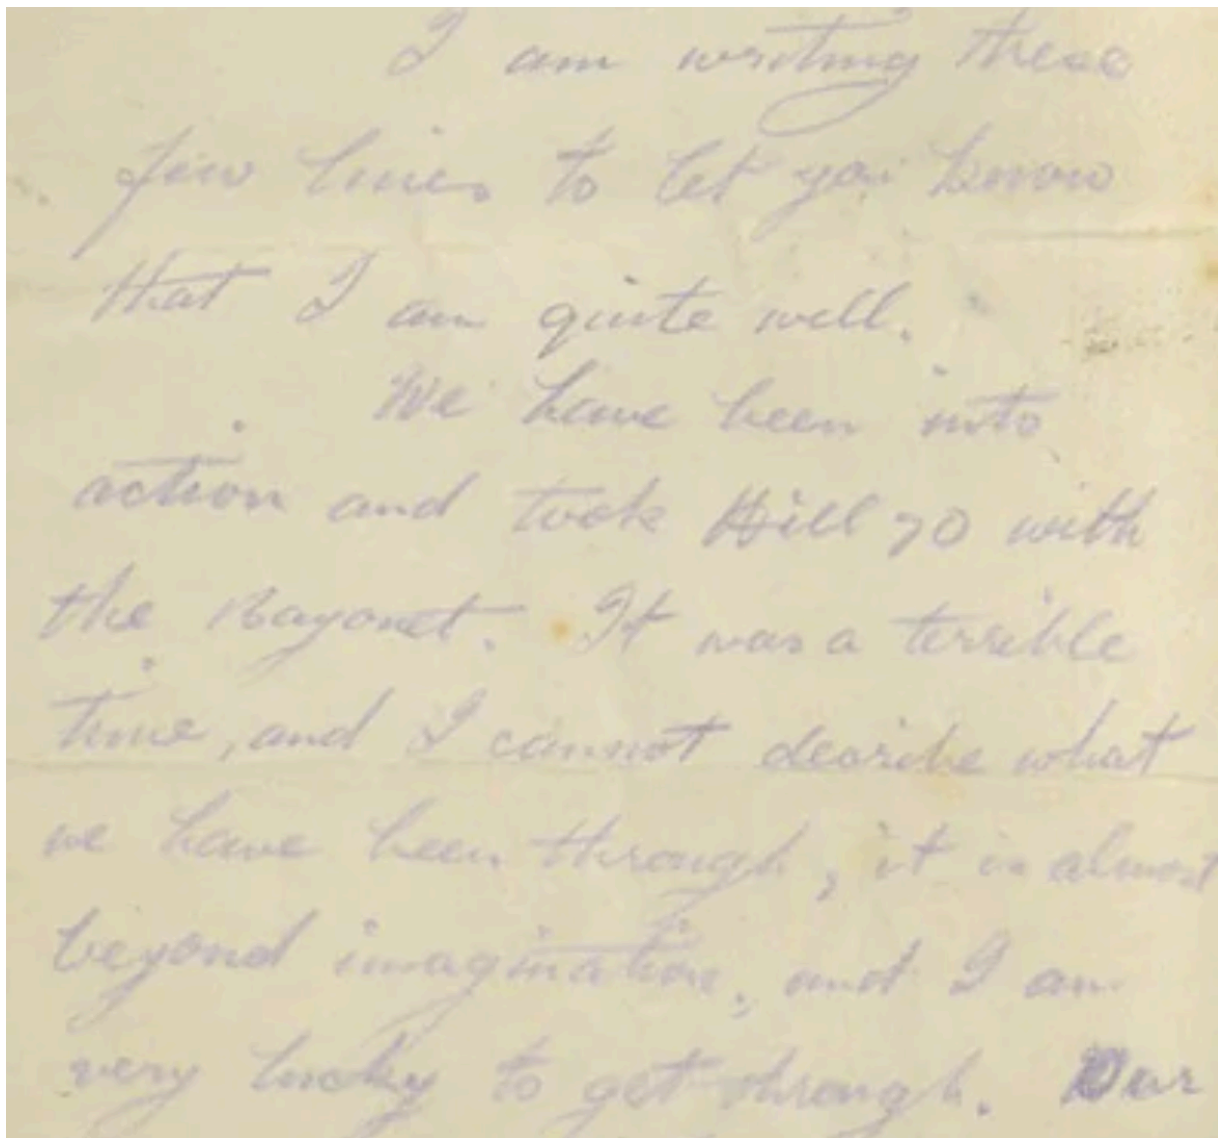 I am writing these
few lines to let you know
that I am quite well.
We have been into
action and took Hill 70 with
the Bayonet. It was a terrible
time, and I cannot describe what
we have been through, it is almost
beyond imagination, and I am
very lucky to get through. Our